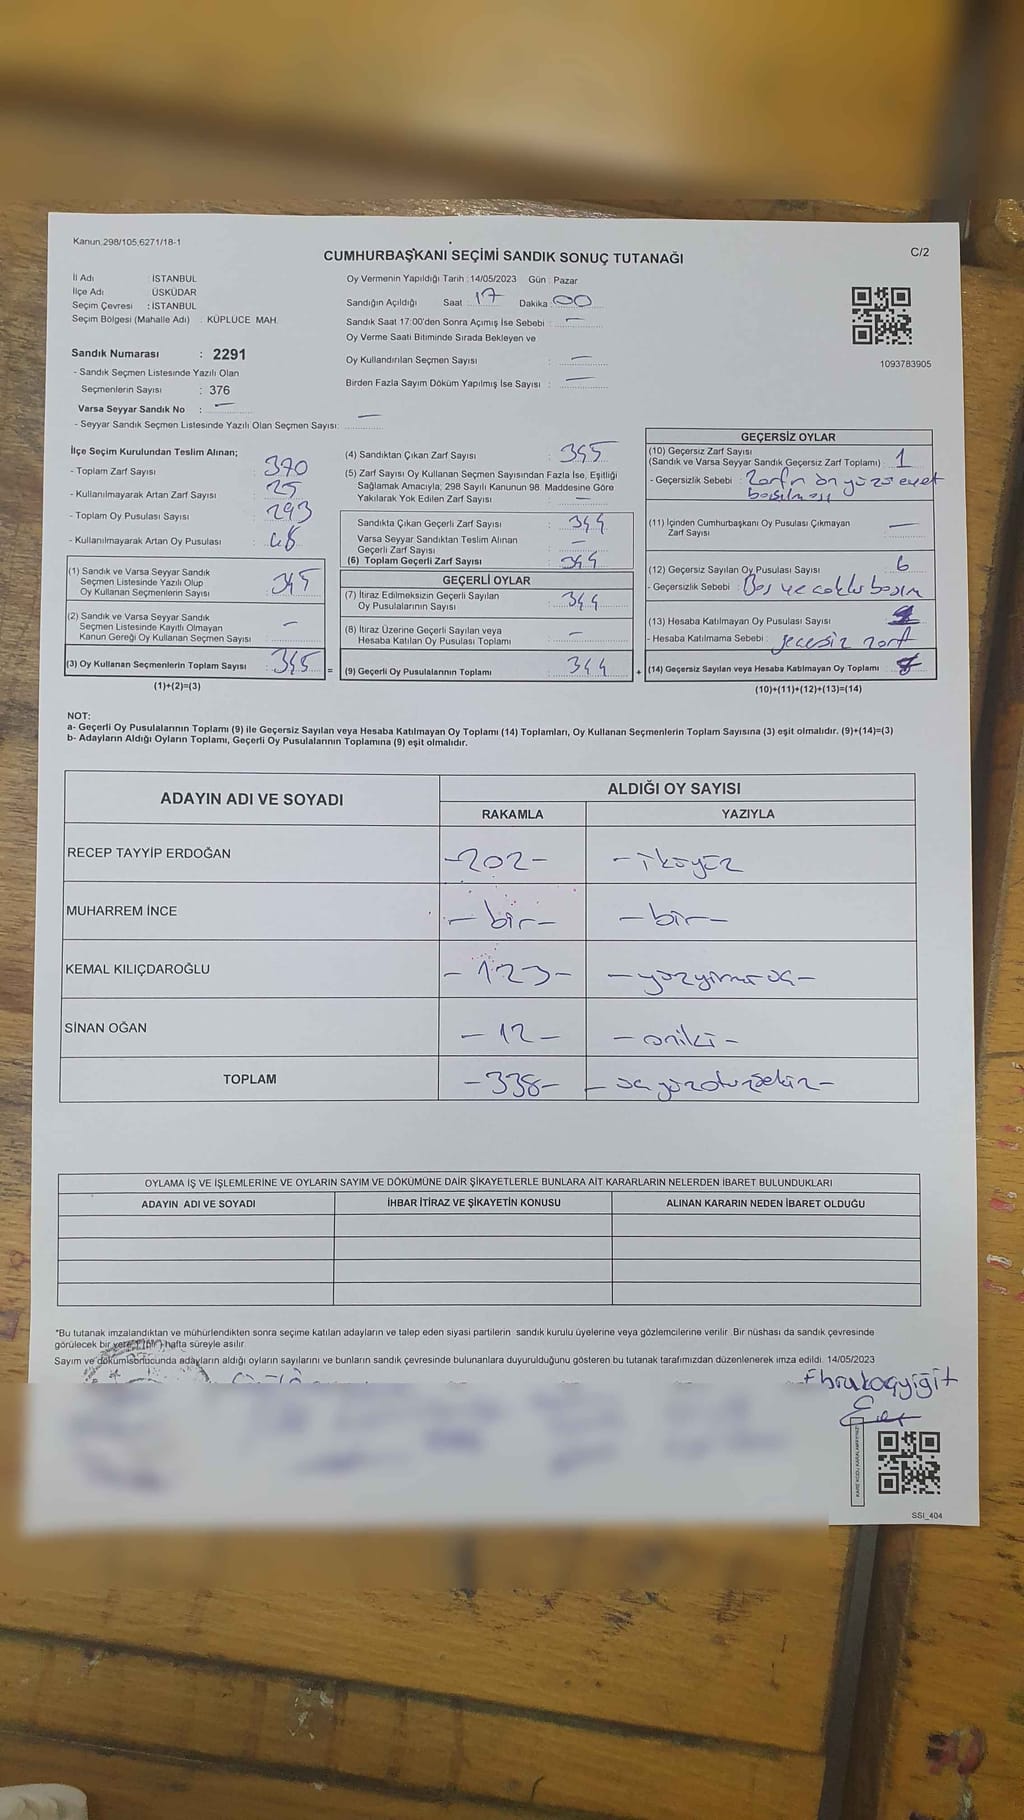 Kanun 298/105,6271/18-1
CUMHURBAŞKANI SEÇİMİ SANDIK SONUÇ TUTANAĞI
C/2
İl Adı : İSTANBUL
İlçe Adı : ÜSKÜDAR
Seçim Çevresi : İSTANBUL
Seçim Bölgesi (Mahalle Adı) : KÜPLÜCE MAH.
Oy Vermenin Yapıldığı Tarih : 14/05/2023 Gün : Pazar
Sandığın Açıldığı Saat : 17 Dakika : 00
Sandık Saat 17:00'den Sonra Açımış İse Sebebi : —
Oy Verme Saati Bitiminde Sırada Bekleyen ve
Oy Kullandırılan Seçmen Sayısı : —
Birden Fazla Sayım Döküm Yapılmış İse Sayısı : —
1093783905
Sandık Numarası : 2291
- Sandık Seçmen Listesinde Yazılı Olan
Seçmenlerin Sayısı : 376
Varsa Seyyar Sandık No : —
- Seyyar Sandık Seçmen Listesinde Yazılı Olan Seçmen Sayısı: —
İlçe Seçim Kurulundan Teslim Alınan;
- Toplam Zarf Sayısı : 370
- Kullanılmayarak Artan Zarf Sayısı : 25
- Toplam Oy Pusulası Sayısı : 293
- Kullanılmayarak Artan Oy Pusulası : 48
(1) Sandık ve Varsa Seyyar Sandık
Seçmen Listesinde Yazılı Olup
Oy Kullanan Seçmenlerin Sayısı : 345
(2) Sandık ve Varsa Seyyar Sandık
Seçmen Listesinde Kayıtlı Olmayan
Kanun Gereği Oy Kullanan Seçmen Sayısı : —
(3) Oy Kullanan Seçmenlerin Toplam Sayısı : 345 =
(1)+(2)=(3)
(4) Sandıktan Çıkan Zarf Sayısı : 345
(5) Zarf Sayısı Oy Kullanan Seçmen Sayısından Fazla İse, Eşitliği
Sağlamak Amacıyla; 298 Sayılı Kanunun 98. Maddesine Göre
Yakılarak Yok Edilen Zarf Sayısı : —
Sandıkta Çıkan Geçerli Zarf Sayısı : 344
Varsa Seyyar Sandıktan Teslim Alınan
Geçerli Zarf Sayısı : —
(6) Toplam Geçerli Zarf Sayısı : 344
GEÇERLİ OYLAR
(7) İtiraz Edilmeksizin Geçerli Sayılan
Oy Pusulalarının Sayısı : 344
(8) İtiraz Üzerine Geçerli Sayılan veya
Hesaba Katılan Oy Pusulası Toplamı : —
(9) Geçerli Oy Pusulalarının Toplamı : 344 +
GEÇERSİZ OYLAR
(10) Geçersiz Zarf Sayısı
(Sandık ve Varsa Seyyar Sandık Geçersiz Zarf Toplamı) : 1
- Geçersizlik Sebebi : Zarfın ön yüzü evet
basılması
(11) İçinden Cumhurbaşkanı Oy Pusulası Çıkmayan
Zarf Sayısı : —
(12) Geçersiz Sayılan Oy Pusulası Sayısı : 6
- Geçersizlik Sebebi : Boş ve çoklu basım
(13) Hesaba Katılmayan Oy Pusulası Sayısı :
- Hesaba Katılmama Sebebi : geçersiz zarf
(14) Geçersiz Sayılan veya Hesaba Katılmayan Oy Toplamı :
(10)+(11)+(12)+(13)=(14)
NOT:
a- Geçerli Oy Pusulalarının Toplamı (9) ile Geçersiz Sayılan veya Hesaba Katılmayan Oy Toplamı (14) Toplamları, Oy Kullanan Seçmenlerin Toplam Sayısına (3) eşit olmalıdır. (9)+(14)=(3)
b- Adayların Aldığı Oyların Toplamı, Geçerli Oy Pusulalarının Toplamına (9) eşit olmalıdır.
ADAYIN ADI VE SOYADI
ALDIĞI OY SAYISI
RAKAMLA YAZIYLA
RECEP TAYYİP ERDOĞAN -202- - ikiyüz
MUHARREM İNCE - bir - - bir -
KEMAL KILIÇDAROĞLU - 123 - - yüzyirmi üç -
SİNAN OĞAN - 12 - - oniki -
TOPLAM -338- - üçyüzotuzsekiz -
OYLAMA İŞ VE İŞLEMLERİNE VE OYLARIN SAYIM VE DÖKÜMÜNE DAİR ŞİKAYETLERLE BUNLARA AİT KARARLARIN NELERDEN İBARET BULUNDUKLARI
ADAYIN ADI VE SOYADI İHBAR İTİRAZ VE ŞİKAYETİN KONUSU ALINAN KARARIN NEDEN İBARET OLDUĞU
*Bu tutanak imzalandıktan ve mühürlendikten sonra seçime katılan adayların ve talep eden siyasi partilerin sandık kurulu üyelerine veya gözlemcilerine verilir .Bir nüshası da sandık çevresinde
görülecek bir yere 1 (bir) hafta süreyle asılır.
Sayım ve dökümsonucunda adayların aldığı oyların sayılarını ve bunların sandık çevresinde bulunanlara duyurulduğunu gösteren bu tutanak tarafımızdan düzenlenerek imza edildi. 14/05/2023
Ebru Koçyiğit
SSI_404